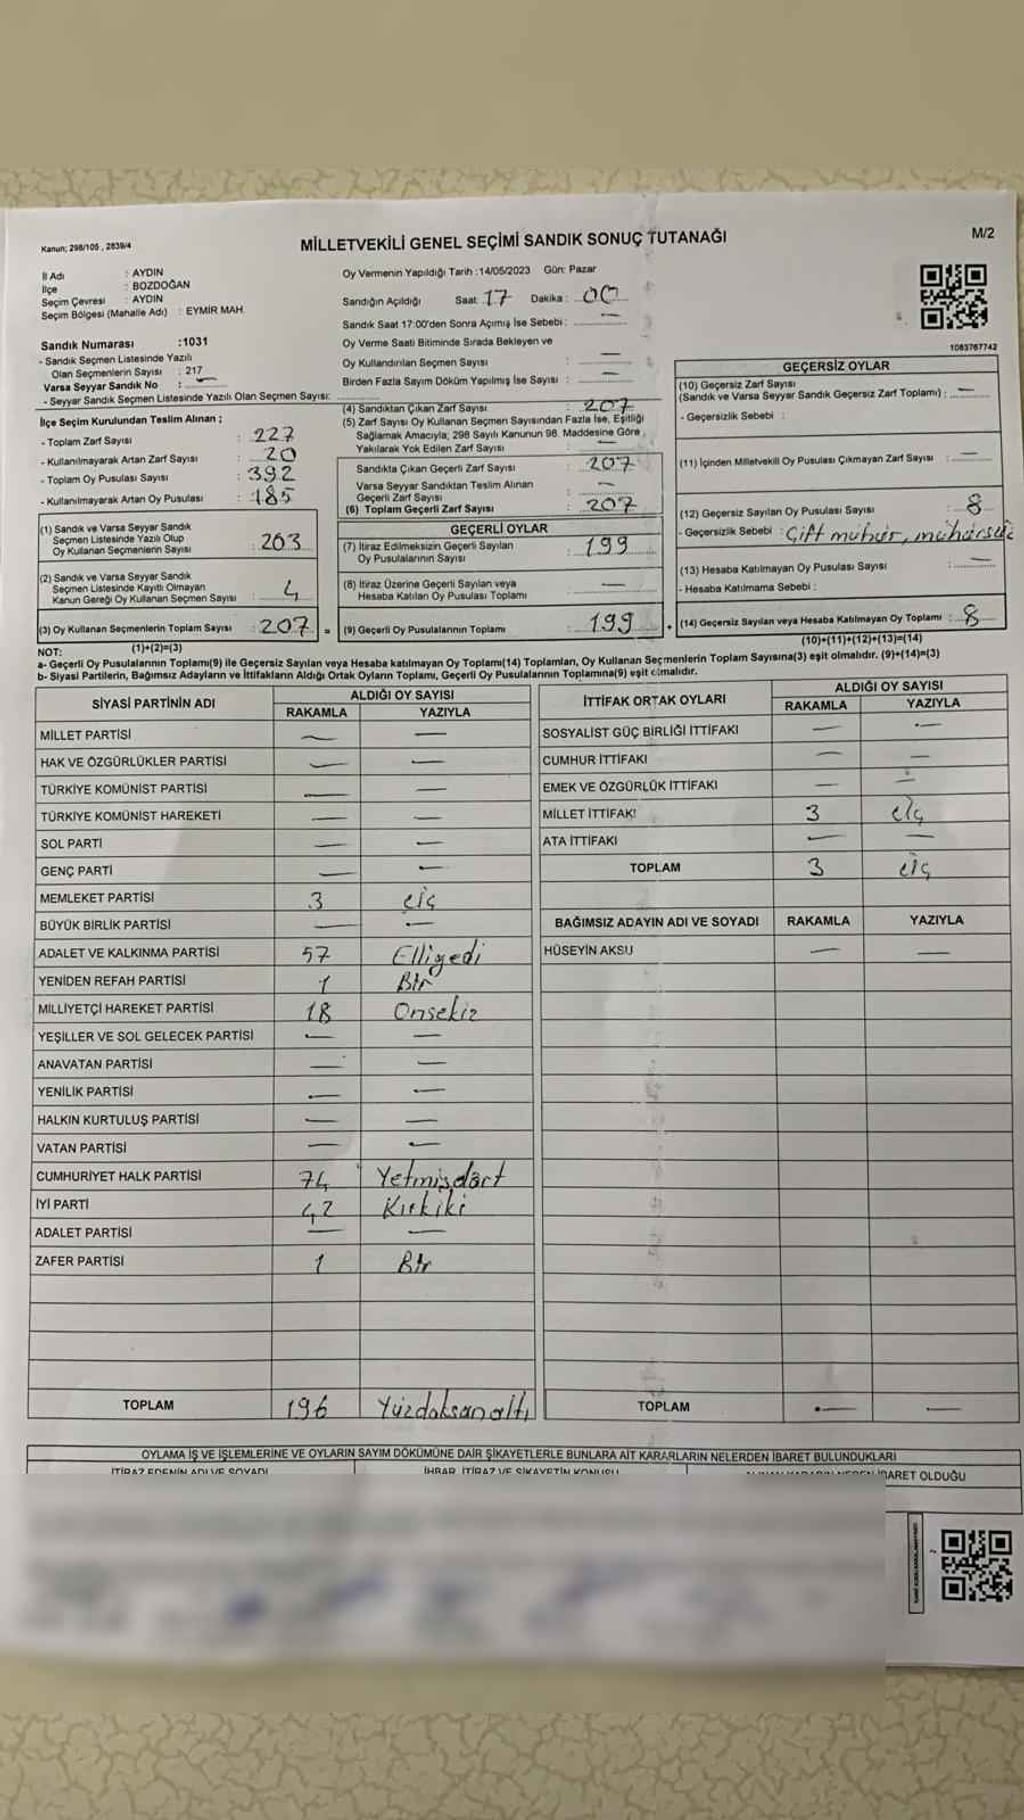 Kanun; 298/105 , 2839/4
MİLLETVEKİLİ GENEL SEÇİMİ SANDIK SONUÇ TUTANAĞI
M/2
İl Adı : AYDIN
İlçe : BOZDOĞAN
Seçim Çevresi : AYDIN
Seçim Bölgesi (Mahalle Adı) : EYMİR MAH.
Oy Vermenin Yapıldığı Tarih :14/05/2023 Gün: Pazar
Sandığın Açıldığı Saat: 17 Dakika : 00
Sandık Saat 17:00'den Sonra Açımış İse Sebebi : —
Oy Verme Saati Bitiminde Sırada Bekleyen ve
Oy Kullandırılan Seçmen Sayısı : —
Birden Fazla Sayım Döküm Yapılmış İse Sayısı : —
1083767742
Sandık Numarası :1031
- Sandık Seçmen Listesinde Yazılı
Olan Seçmenlerin Sayısı : 217
Varsa Seyyar Sandık No : —
- Seyyar Sandık Seçmen Listesinde Yazılı Olan Seçmen Sayısı:
İlçe Seçim Kurulundan Teslim Alınan ;
- Toplam Zarf Sayısı : 227
- Kullanılmayarak Artan Zarf Sayısı : 20
- Toplam Oy Pusulası Sayısı : 392
- Kullanılmayarak Artan Oy Pusulası : 185
(1) Sandık ve Varsa Seyyar Sandık
Seçmen Listesinde Yazılı Olup
Oy Kullanan Seçmenlerin Sayısı : 203
(2) Sandık ve Varsa Seyyar Sandık
Seçmen Listesinde Kayıtlı Olmayan
Kanun Gereği Oy Kullanan Seçmen Sayısı : 4
(3) Oy Kullanan Seçmenlerin Toplam Sayısı : 207 =
(1)+(2)=(3)
(4) Sandıktan Çıkan Zarf Sayısı : 207
(5) Zarf Sayısı Oy Kullanan Seçmen Sayısından Fazla İse, Eşitliği
Sağlamak Amacıyla; 298 Sayılı Kanunun 98. Maddesine Göre
Yakılarak Yok Edilen Zarf Sayısı : —
Sandıkta Çıkan Geçerli Zarf Sayısı : 207
Varsa Seyyar Sandıktan Teslim Alınan
Geçerli Zarf Sayısı : —
(6) Toplam Geçerli Zarf Sayısı : 207
GEÇERLİ OYLAR
(7) İtiraz Edilmeksizin Geçerli Sayılan
Oy Pusulalarının Sayısı : 199
(8) İtiraz Üzerine Geçerli Sayılan veya
Hesaba Katılan Oy Pusulası Toplamı : —
(9) Geçerli Oy Pusulalarının Toplamı : 199 +
GEÇERSİZ OYLAR
(10) Geçersiz Zarf Sayısı
(Sandık ve Varsa Seyyar Sandık Geçersiz Zarf Toplamı) : —
- Geçersizlik Sebebi :
(11) İçinden Milletvekili Oy Pusulası Çıkmayan Zarf Sayısı : —
(12) Geçersiz Sayılan Oy Pusulası Sayısı : 8
- Geçersizlik Sebebi : Çift mühür, mühürsüz
(13) Hesaba Katılmayan Oy Pusulası Sayısı : —
- Hesaba Katılmama Sebebi :
(14) Geçersiz Sayılan veya Hesaba Katılmayan Oy Toplamı : 8
(10)+(11)+(12)+(13)=(14)
NOT:
a- Geçerli Oy Pusulalarının Toplamı(9) ile Geçersiz Sayılan veya Hesaba katılmayan Oy Toplamı(14) Toplamları, Oy Kullanan Seçmenlerin Toplam Sayısına(3) eşit olmalıdır. (9)+(14)=(3)
b- Siyasi Partilerin, Bağımsız Adayların ve İttifakların Aldığı Ortak Oyların Toplamı, Geçerli Oy Pusulalarının Toplamına(9) eşit olmalıdır.
SİYASİ PARTİNİN ADI ALDIĞI OY SAYISI
RAKAMLA YAZIYLA
MİLLET PARTİSİ — —
HAK VE ÖZGÜRLÜKLER PARTİSİ — —
TÜRKİYE KOMÜNİST PARTİSİ — —
TÜRKİYE KOMÜNİST HAREKETİ — —
SOL PARTİ — —
GENÇ PARTİ — —
MEMLEKET PARTİSİ 3 üç
BÜYÜK BİRLİK PARTİSİ — —
ADALET VE KALKINMA PARTİSİ 57 Elliyedi
YENİDEN REFAH PARTİSİ 1 Bir
MİLLİYETÇİ HAREKET PARTİSİ 18 Onsekiz
YEŞİLLER VE SOL GELECEK PARTİSİ — —
ANAVATAN PARTİSİ — —
YENİLİK PARTİSİ — —
HALKIN KURTULUŞ PARTİSİ — —
VATAN PARTİSİ — —
CUMHURİYET HALK PARTİSİ 74 Yetmişdört
İYİ PARTİ 42 Kırkiki
ADALET PARTİSİ — —
ZAFER PARTİSİ 1 Bir
TOPLAM 196 Yüzdoksanaltı
İTTİFAK ORTAK OYLARI ALDIĞI OY SAYISI
RAKAMLA YAZIYLA
SOSYALİST GÜÇ BİRLİĞİ İTTİFAKI — —
CUMHUR İTTİFAKI — —
EMEK VE ÖZGÜRLÜK İTTİFAKI — —
MİLLET İTTİFAKI 3 üç
ATA İTTİFAKI — —
TOPLAM 3 üç
BAĞIMSIZ ADAYIN ADI VE SOYADI RAKAMLA YAZIYLA
HÜSEYİN AKSU — —
TOPLAM — —
OYLAMA İŞ VE İŞLEMLERİNE VE OYLARIN SAYIM DÖKÜMÜNE DAİR ŞİKAYETLERLE BUNLARA AİT KARARLARIN NELERDEN İBARET BULUNDUKLARI
İTİRAZ EDENİN ADI VE SOYADI İHBAR, İTİRAZ VE ŞİKAYETİN KONUSU İBARET OLDUĞU